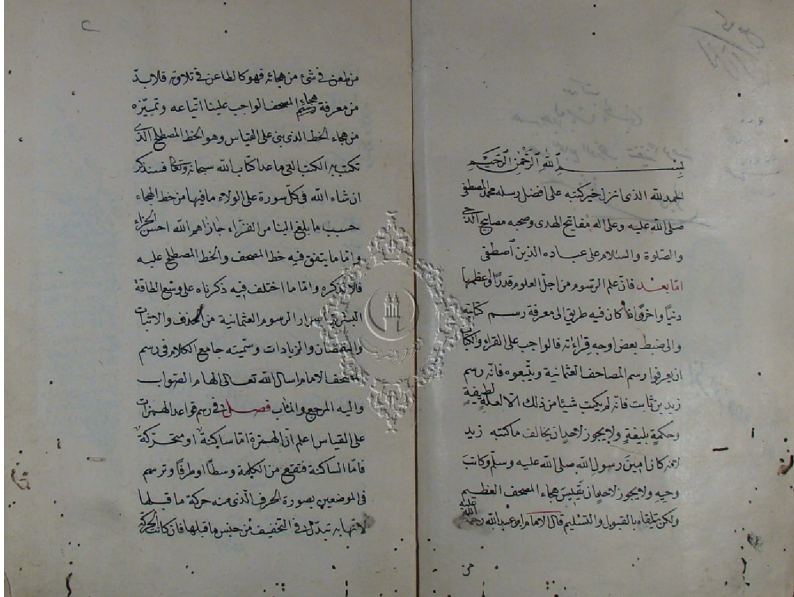 بسم الله الرحمن الرحيم
الحمد لله الذى انزل خير كتبه على افضل رسله محمد المصطفى
صلى الله عليه وعلى اله مفاتح الهدى وصحبه مصابيح الدجى
والصلوة والسلام على عباده الذين اصطفى
اما بعد فان علم الرسوم من اجل العلوم قدرا واعظمها
كان فيه طريق الى معرفة رسم كتابته
والى ضبط بعض اوجه قراءته فالواجب على القراء والكتاب
ان يعرفوا رسم المصاحف العثمانية ويتبعوه فانه رسم
زيد بن ثابت فانه لم يكتب شيئا من ذلك الا لعلة لطيفة
وحكمة بليغة ولا يجوز لاحد ان يخالف ما كتبه زيد
لانه كان امين رسول الله صلى الله عليه وسلم وكاتب
وحيه ولا يجوز لاحد ان يقيس هجاء المصحف العظيم
ولكن يلقاه بالقبول والتسليم قال الامام ابو عبد الله رحمة الله عليه
من
٢
من طعن فى شئ من هجائه فهو كالطاعن فى تلاوته فلا بد
من معرفة هجاء رسم المصحف الواجب علينا اتباعه وتمييزه
من هجاء الخط الذى بنى على القياس وهو الخط المصطلح الذى
تكتب به الكتب التى ما عدا كتاب الله سبحانه وتعالى فسنذكر
ان شاء الله فى كل سورة على الولاء ما فيها من خط الهجاء
حسب ما بلغ الينا من القراء جازاهم الله احسن الجزاء
واما ما يتفق فيه خط المصحف والخط المصطلح عليه
فلا نذكره واما ما اختلف فيه ذكرناه على وسع الطاقة
البشرية اسرار الرسوم العثمانية من الحذف والاثبات
والنقصان والزيادات وسميته جامع الكلام فى رسم
المصحف الامام اسال الله تعالى الهام الصواب
واليه المرجع والمآب فصل فى رسم قواعد الهمزات
على القياس اعلم ان الهمزة اما ساكنة او متحركة
فاما الساكنة فتقع من الكلمة وسطا او طرفا وترسم
فى الموضعين بصورة الحرف الذى منه حركة ما قبلها
لانها به تبدل فى التخفيف من جنس ما قبلها فان كانت الحركة